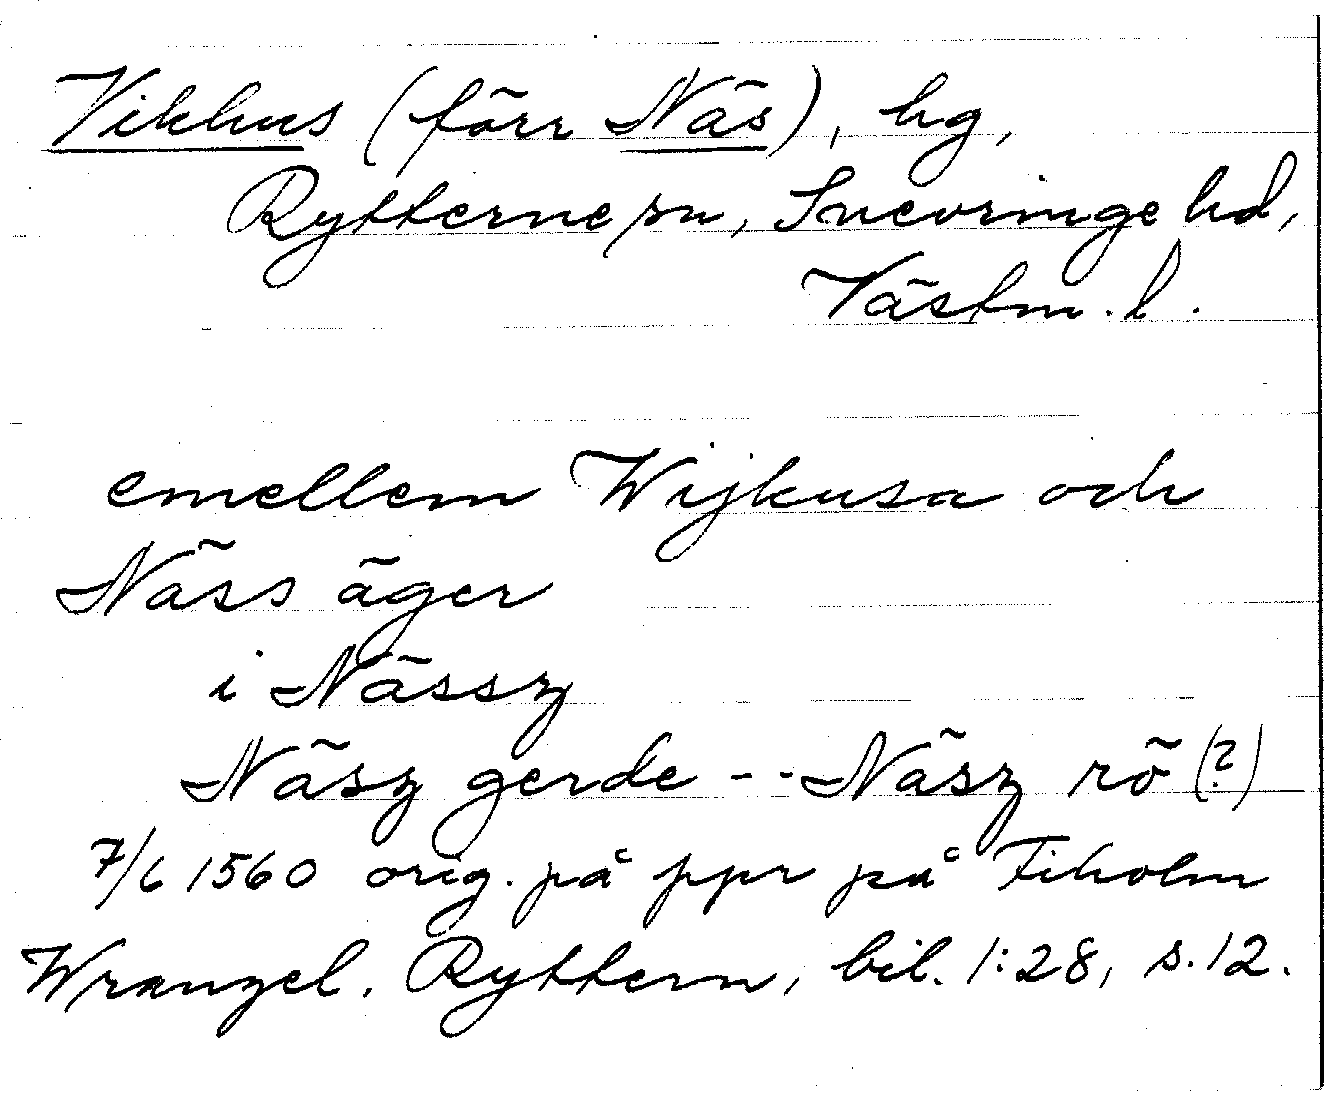 Vikhus (förr Näs), hg,
Rytterne sn, Snevringe hd,
Västm. l.
emellem Wijkusa och
Näss äger
i Nässz
Näsz gerde - - Näsz rö (?)
7/6 1560 orig. på ppr på Fiholm
Wrangel. Ryttern, bil. 1:28, s. 12.